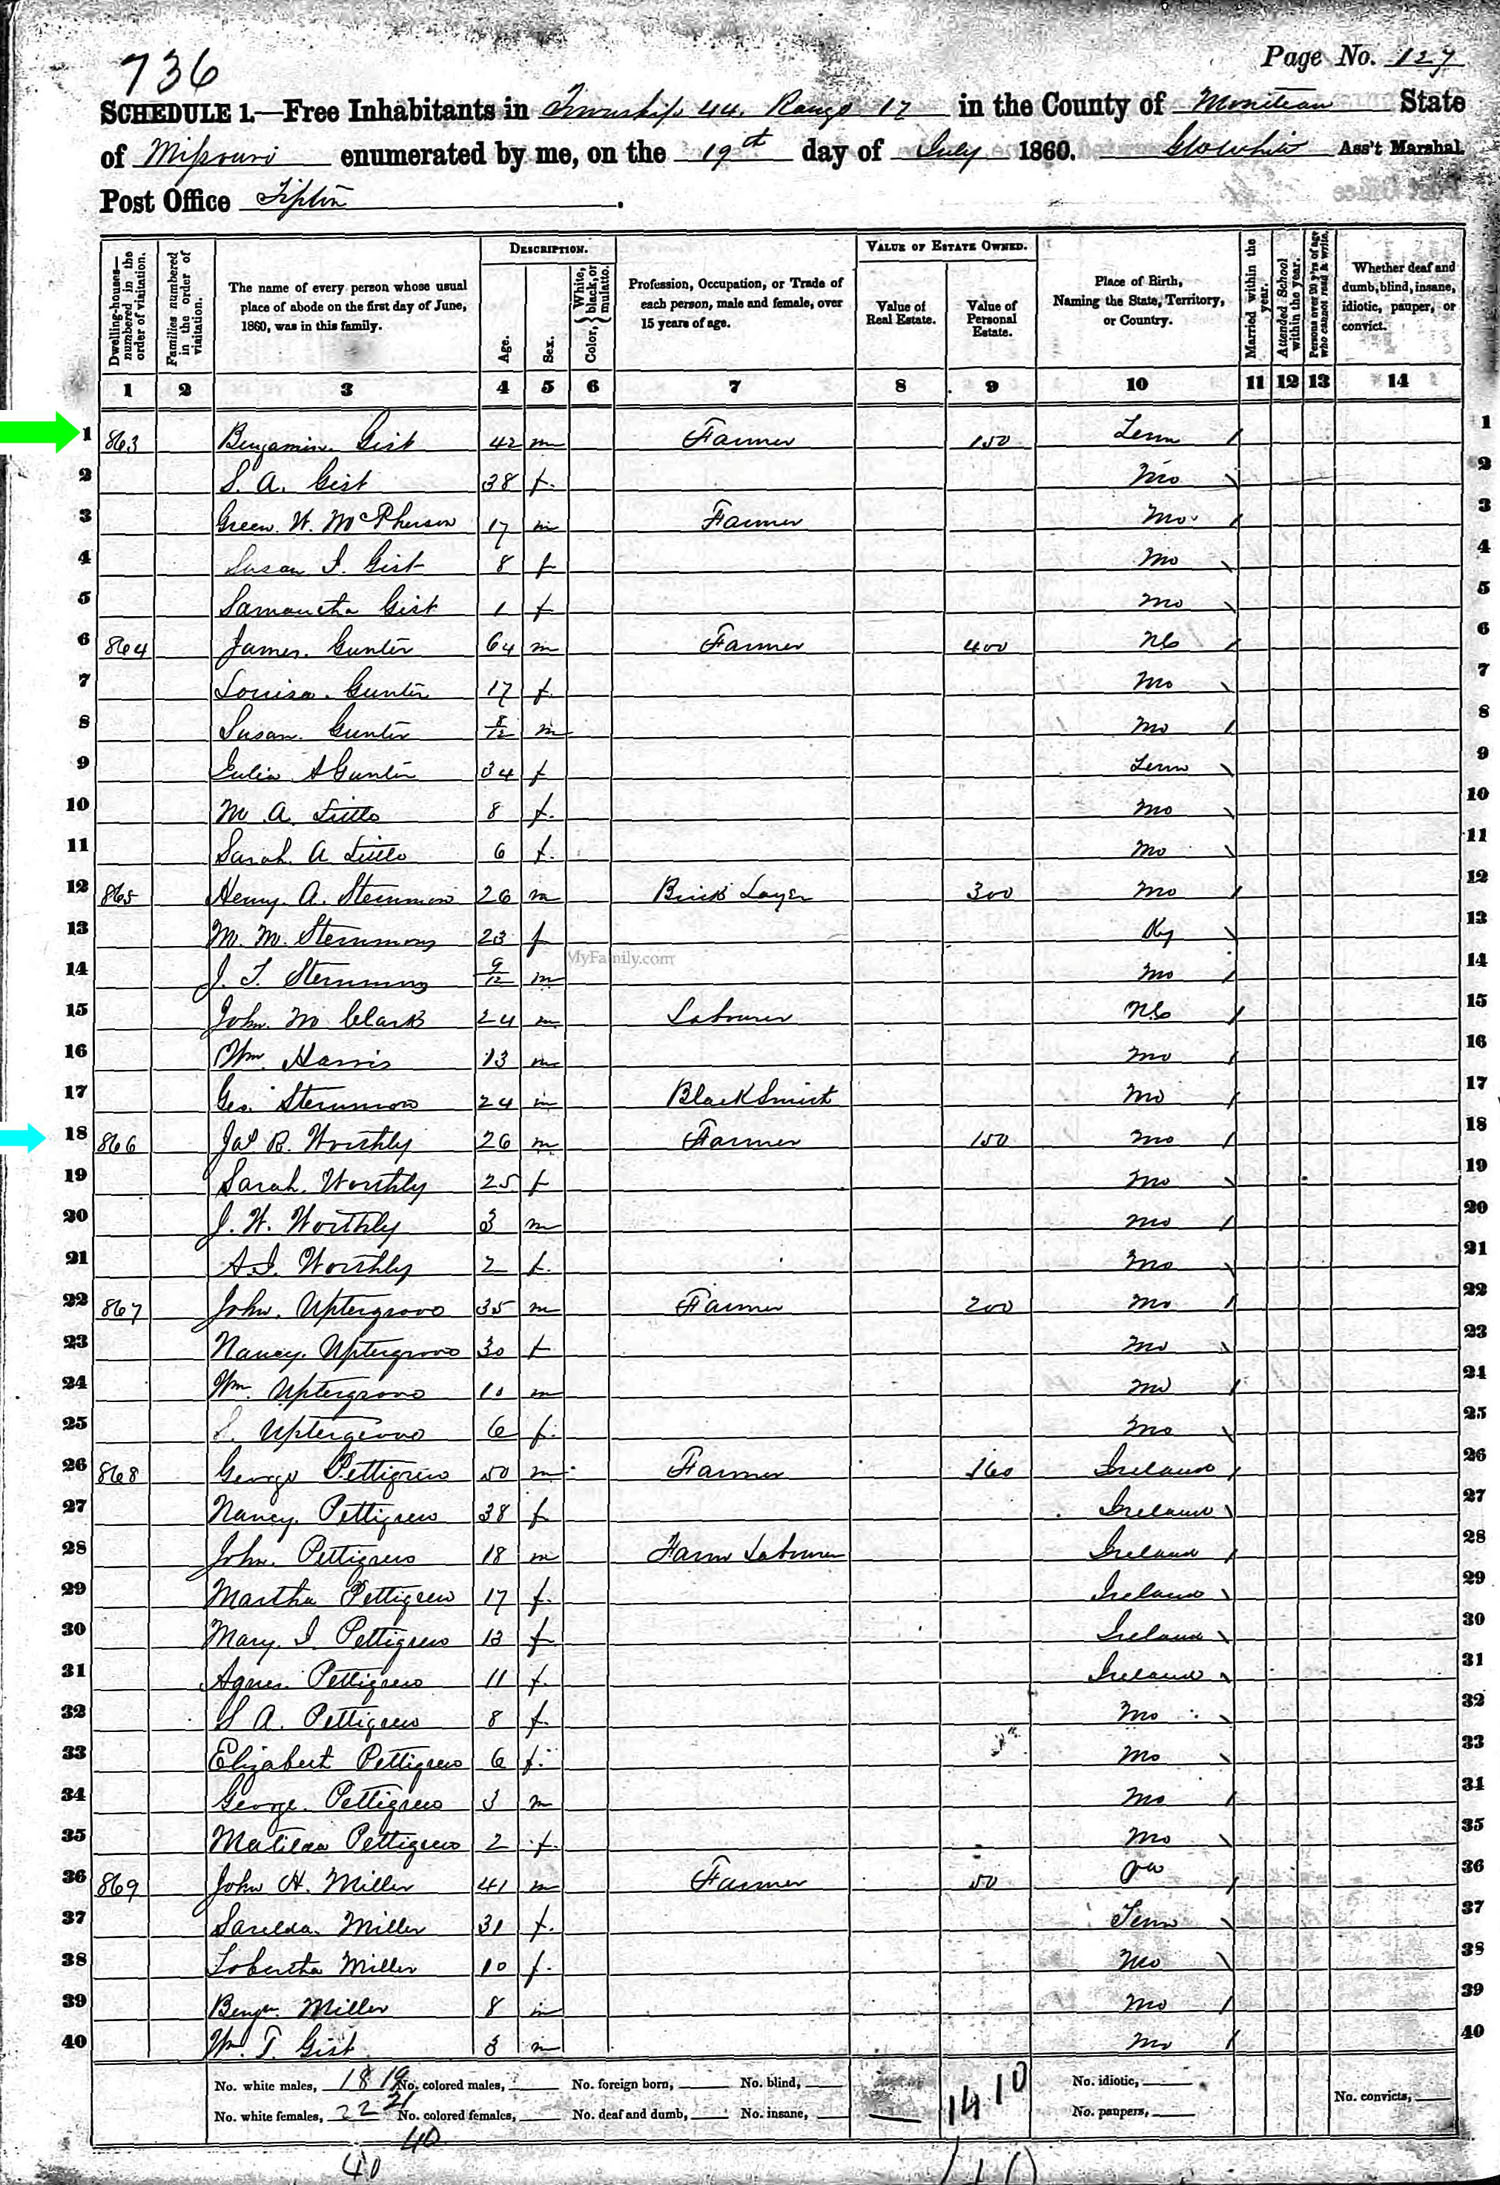 736
Page No. 127
SCHEDULE 1.—Free Inhabitants in Township 44. Range 17 in the County of Moniteau State
of Missouri enumerated by me, on the 19th day of July 1860. Ass't Marshal.
Post Office Tipton.
Dwelling-houses—numbered in the order of visitation.
Families numbered in the order of visitation.
The name of every person whose usual place of abode on the first day of June, 1860, was in this family.
DESCRIPTION.
Age.
Sex.
Color, White, black, or mulatto.
Profession, Occupation, or Trade of each person, male and female, over 15 years of age.
VALUE OF ESTATE OWNED.
Value of Real Estate.
Value of Personal Estate.
Place of Birth, Naming the State, Territory, or Country.
Married within the year.
Attended School within the year.
Persons over 20 y'rs of age who cannot read & write.
Whether deaf and dumb, blind, insane, idiotic, pauper, or convict.
1 2 3 4 5 6 7 8 9 10 11 12 13 14
1 863 Benjamin Gist 42 m Farmer 150 Tenn / 1
2 S. A. Gist 38 f. Mo \ 2
3 Green W. McPherson 17 m Farmer Mo. / 3
4 Susan I. Gist 8 f Mo \ 4
5 Samantha Gist 1 f Mo \ 5
6 864 James. Gunter 64 m Farmer 400 NC / 6
7 Louisa. Gunter 17 f. Mo \ 7
8 Susan. Gunter 8/12 m Mo / 8
9 Julia A Gunter 34 f Tenn \ 9
10 M A. 8 f. Mo \ 10
11 Sarah. A 6 f. Mo \ 11
12 865 Henry. A. Stemmon 26 m Brick Layer 300 Mo / 12
13 M. M. Stemmons 23 f Ky \ 13
MyFamily.com
14 J. T. Stemmons 9/12 m Mo / 14
15 John. M Clark 24 m Labourer N.C / 15
16 Wm Harris 13 m Mo / 16
17 Geo. Stemmons 24 m Black Smith Mo / 17
18 866 Jas B. Worthly 26 m Farmer 150 Mo / 18
19 Sarah. Worthly 25 f Mo \ 19
20 J. W. Worthly 3 m Mo / 20
21 A. I. Worthly 2 f. Mo \ 21
22 867 John. Uptergrove 35 m Farmer 200 Mo / 22
23 Nancy. Uptergrove 30 f Mo \ 23
24 Wm. Uptergrove 10 m Mo / 24
25 S. Uptergrove 6 f. Mo \ 25
26 868 George Pettigrew 50 m Farmer 160 Ireland / 26
27 Nancy. Pettigrew 38 f Ireland \ 27
28 John. Pettigrew 18 m Farm Labourer Ireland / 28
29 Martha Pettigrew 17 f. Ireland \ 29
30 Mary. I. Pettigrew 13 f Ireland \ 30
31 Agnes. Pettigrew 11 f. Ireland \ 31
32 S A. Pettigrew 8 f. Mo \ 32
33 Elizabeth Pettigrew 6 f. Mo \ 33
34 George. Pettigrew 3 m Mo / 34
35 Matilda Pettigrew 2 f. Mo \ 35
36 869 John H. Miller 41 m Farmer 50 / 36
37 Sarelda. Miller 31 f. Tenn \ 37
38 Miller 10 f. Mo \ 38
39 Benjn Miller 8 m Mo / 39
40 Wm. T. Gist 3 m Mo / 40
No. white males, 18 19 No. colored males, No. foreign born, No. blind, 1410 No. idiotic,
No. white females, 22 21 No. colored females, No. deaf and dumb, No. insane, No. paupers, No. convicts,
40
40